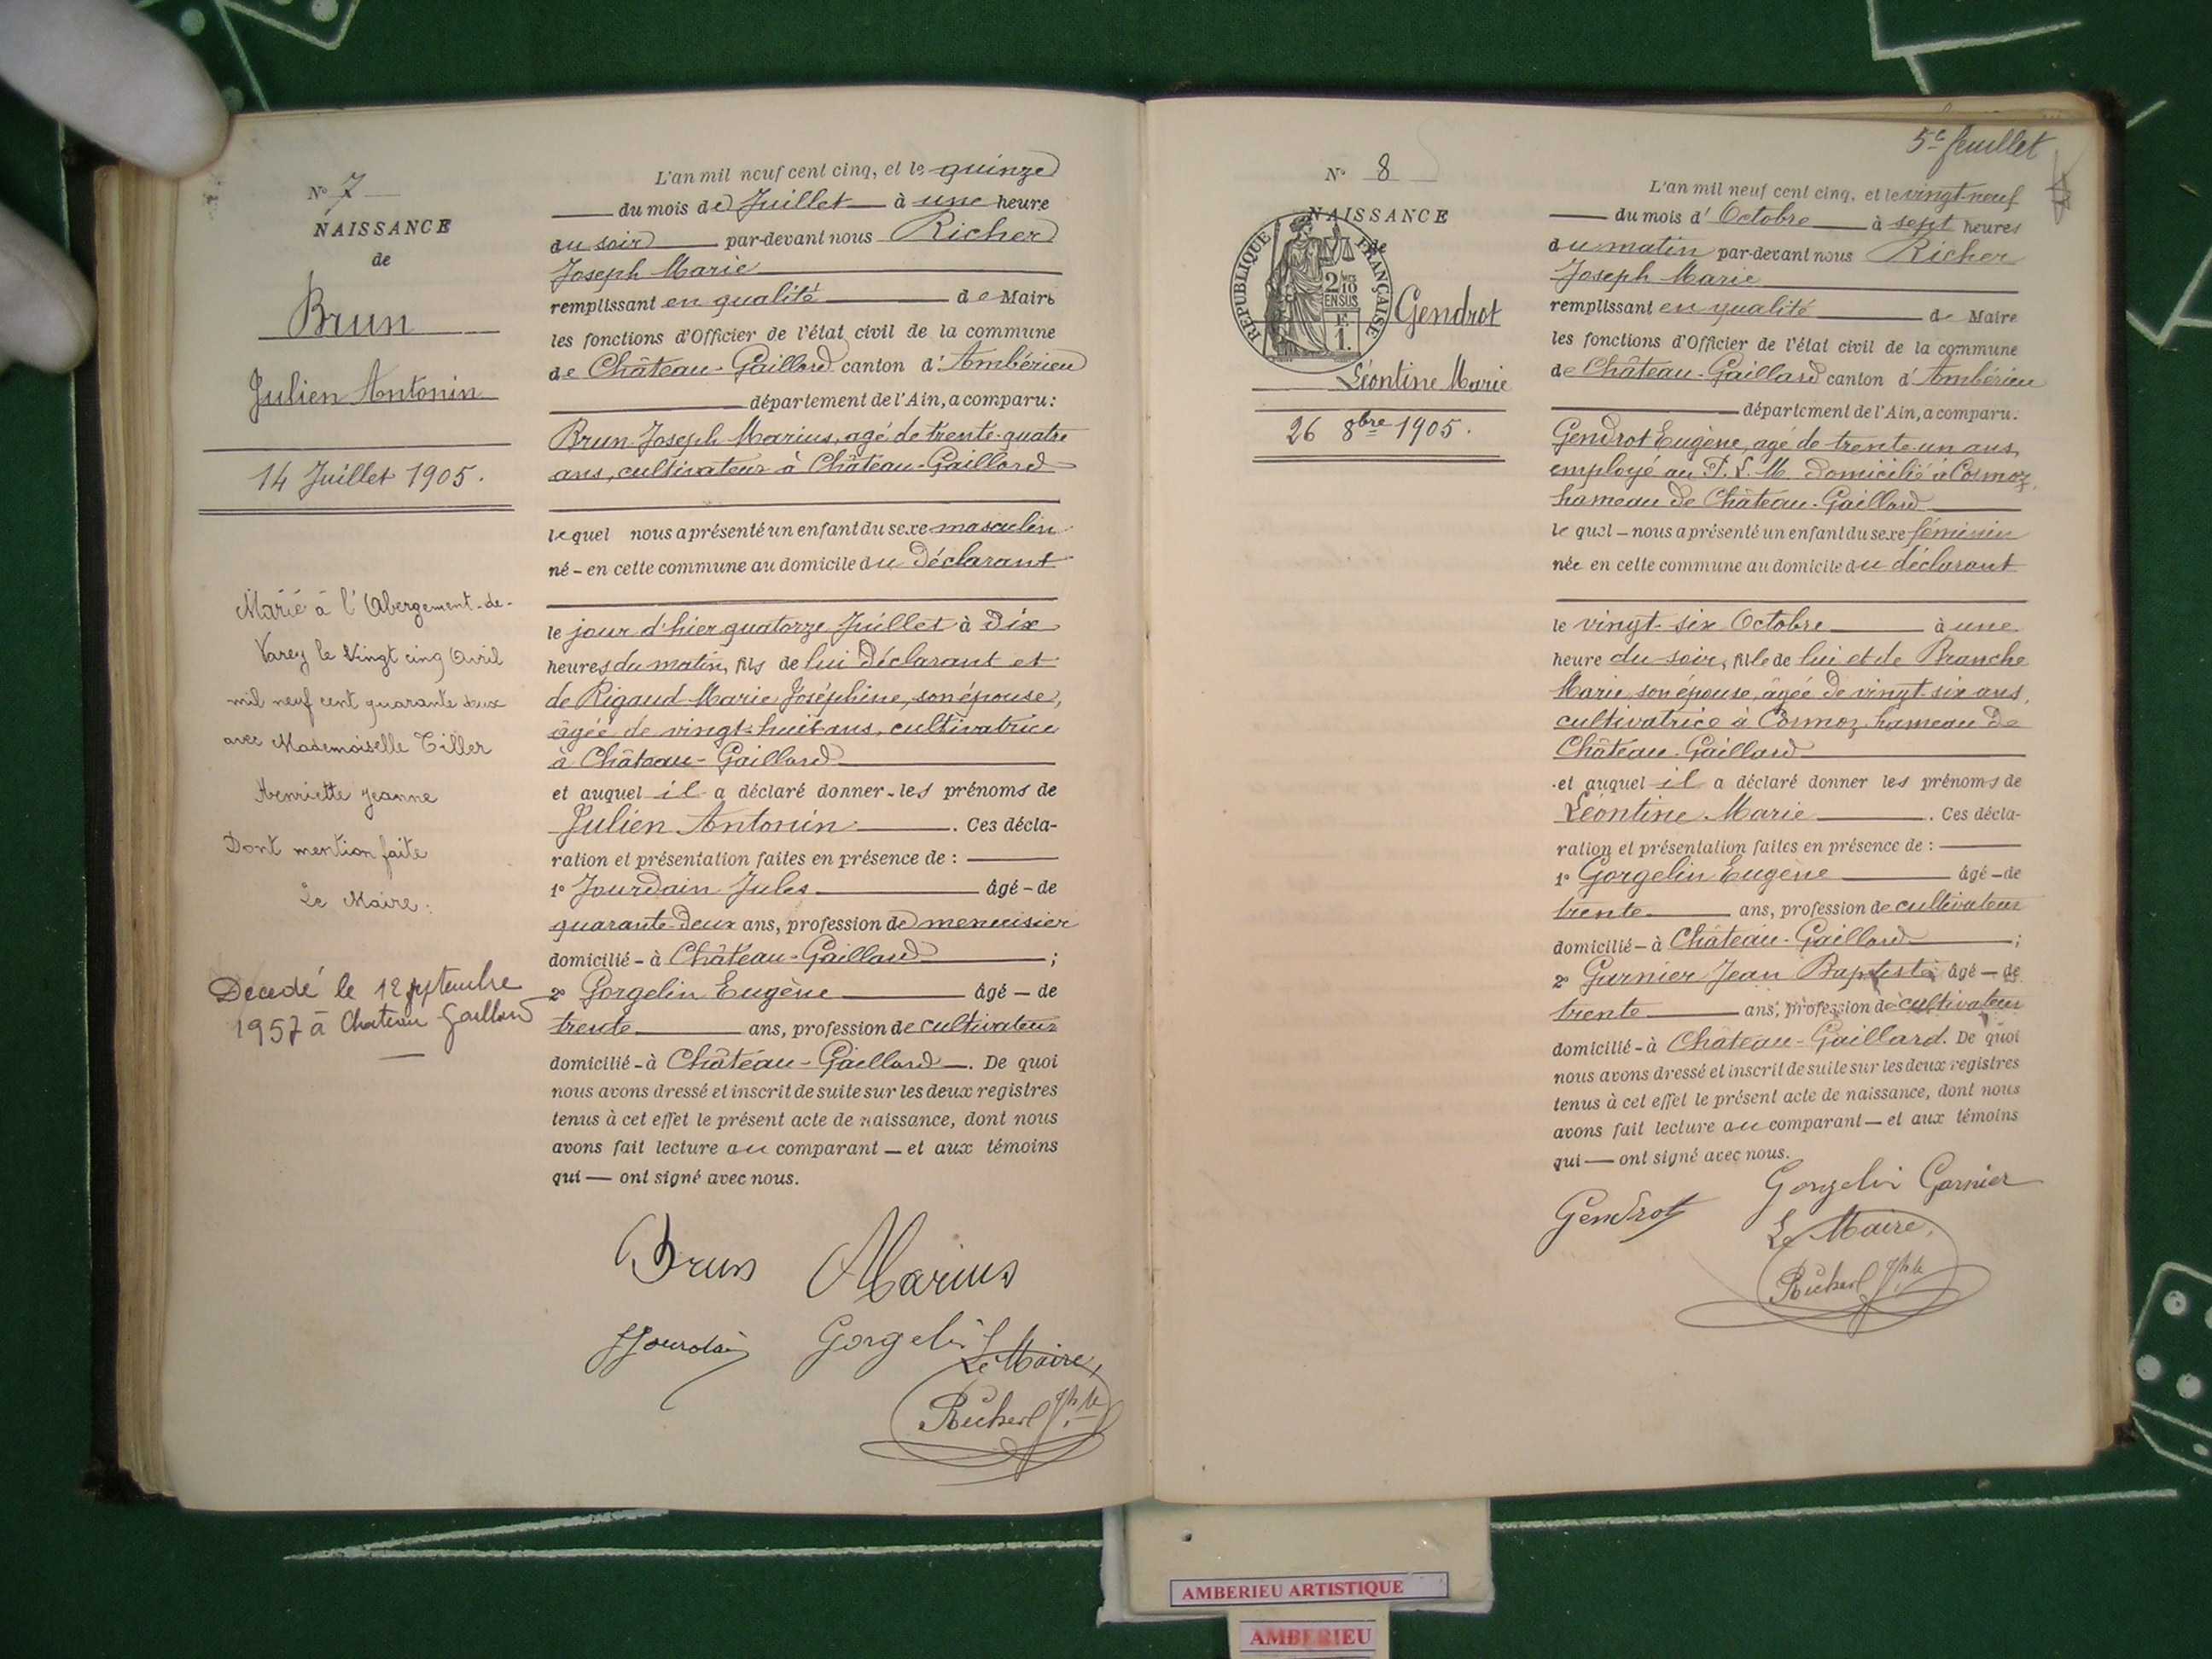 N° 7
NAISSANCE
de
Brun
Julien Antonin
14 Juillet 1905.
Marié à l'Abergement-de-
Varey le Vingt cinq Avril
mil neuf cent quarante deux
avec Mademoiselle Tiller
Henriette Jeanne
Dont mention faite
Le Maire:
Décedé le 12 septembre
1957 à Chateau Gaillard
L'an mil neuf cent cinq, et le quinze
du mois de Juillet à une heure
du soir par-devant nous Richer
Joseph Marie
remplissant en qualité de Maire
les fonctions d'Officier de l'état civil de la commune
de Château-Gaillard canton d'Ambérieu
département de l'Ain, a comparu:
Brun Joseph Marius, agé de trente-quatre
ans, cultivateur à Château-Gaillard
lequel nous a présenté un enfant du sexe masculin
né - en cette commune au domicile du Déclarant
le jour d'hier quatorze Juillet à Dix
heures du matin, fils de lui Déclarant et
de Rigaud Marie Joséphine, son épouse,
âgée de vingt-huit ans, cultivatrice
à Château-Gaillard
et auquel il a déclaré donner les prénoms de
Julien Antonin. Ces décla-
ration et présentation faites en présence de :
1° Jourdain Jules âgé - de
quarante-deux ans, profession de menuisier
domicilié - à Château-Gaillard ;
2° Gorgelin Eugène âgé - de
trente ans, profession de cultivateur
domicilié - à Château-Gaillard. De quoi
nous avons dressé et inscrit de suite sur les deux registres
tenus à cet effet le présent acte de naissance, dont nous
avons fait lecture au comparant - et aux témoins
qui - ont signé avec nous.
Brun Marius
JJourdain Gorgelin
Le Maire,
Richer Jph Me
5e feuillet
N° 8
NAISSANCE
de
REPUBLIQUE FRANÇAISE
2/10
EN SUS
F.
1.
Gendrot
Léontine Marie
26 8bre 1905.
L'an mil neuf cent cinq, et le vingt-neuf
du mois d'Octobre à sept heures
du matin par-devant nous Richer
Joseph Marie
remplissant en qualité de Maire
les fonctions d'Officier de l'état civil de la commune
de Château-Gaillard canton d'Ambérieu
département de l'Ain, a comparu.
Gendrot Eugène, agé de trente-un ans,
employé au P.L.M. domicilié à Cosmoz,
hameau de Château-Gaillard
lequel - nous a présenté un enfant du sexe féminin
née en cette commune au domicile du déclarant
le vingt-six Octobre à une
heure du soir, fille de lui et de Branche
Marie, son épouse, âgée de vingt-six ans,
cultivatrice à Cosmoz, hameau de
Château-Gaillard
et auquel il a déclaré donner les prénoms de
Léontine Marie. Ces décla-
ration et présentation faites en présence de :
1° Gorgelin Eugène âgé - de
trente ans, profession de cultivateur
domicilié - à Château-Gaillard ;
2° Garnier Jean Baptiste âgé - de
trente ans, profession de cultivateur
domicilié - à Château-Gaillard. De quoi
nous avons dressé et inscrit de suite sur les deux registres
tenus à cet effet le présent acte de naissance, dont nous
avons fait lecture au comparant - et aux témoins
qui - ont signé avec nous.
Gorgelin Garnier
Gendrot
Le Maire,
Richer Jph Me
AMBERIEU ARTISTIQUE
AMBERIEU